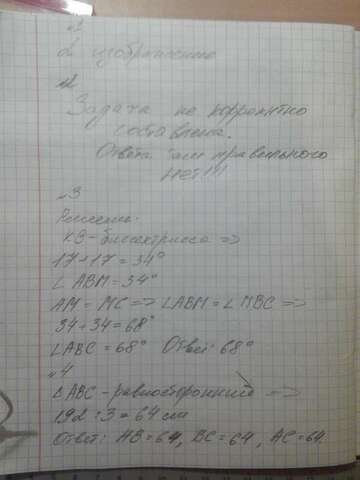 №1
2 изображение
№2
Задача не корректно
составлена.
Ответа там правельного
нет!!!
№3
Решение:
КВ - биссектриса =>
17+17=34°
∠ABM=34°
AM = MC => ∠ABM = ∠MBC =>
34+34=68°
∠ABC = 68° Ответ: 68°
№4
△ABC - равносторонний =>
192:3=64 см
Ответ: AB=64, BC=64, AC=64.